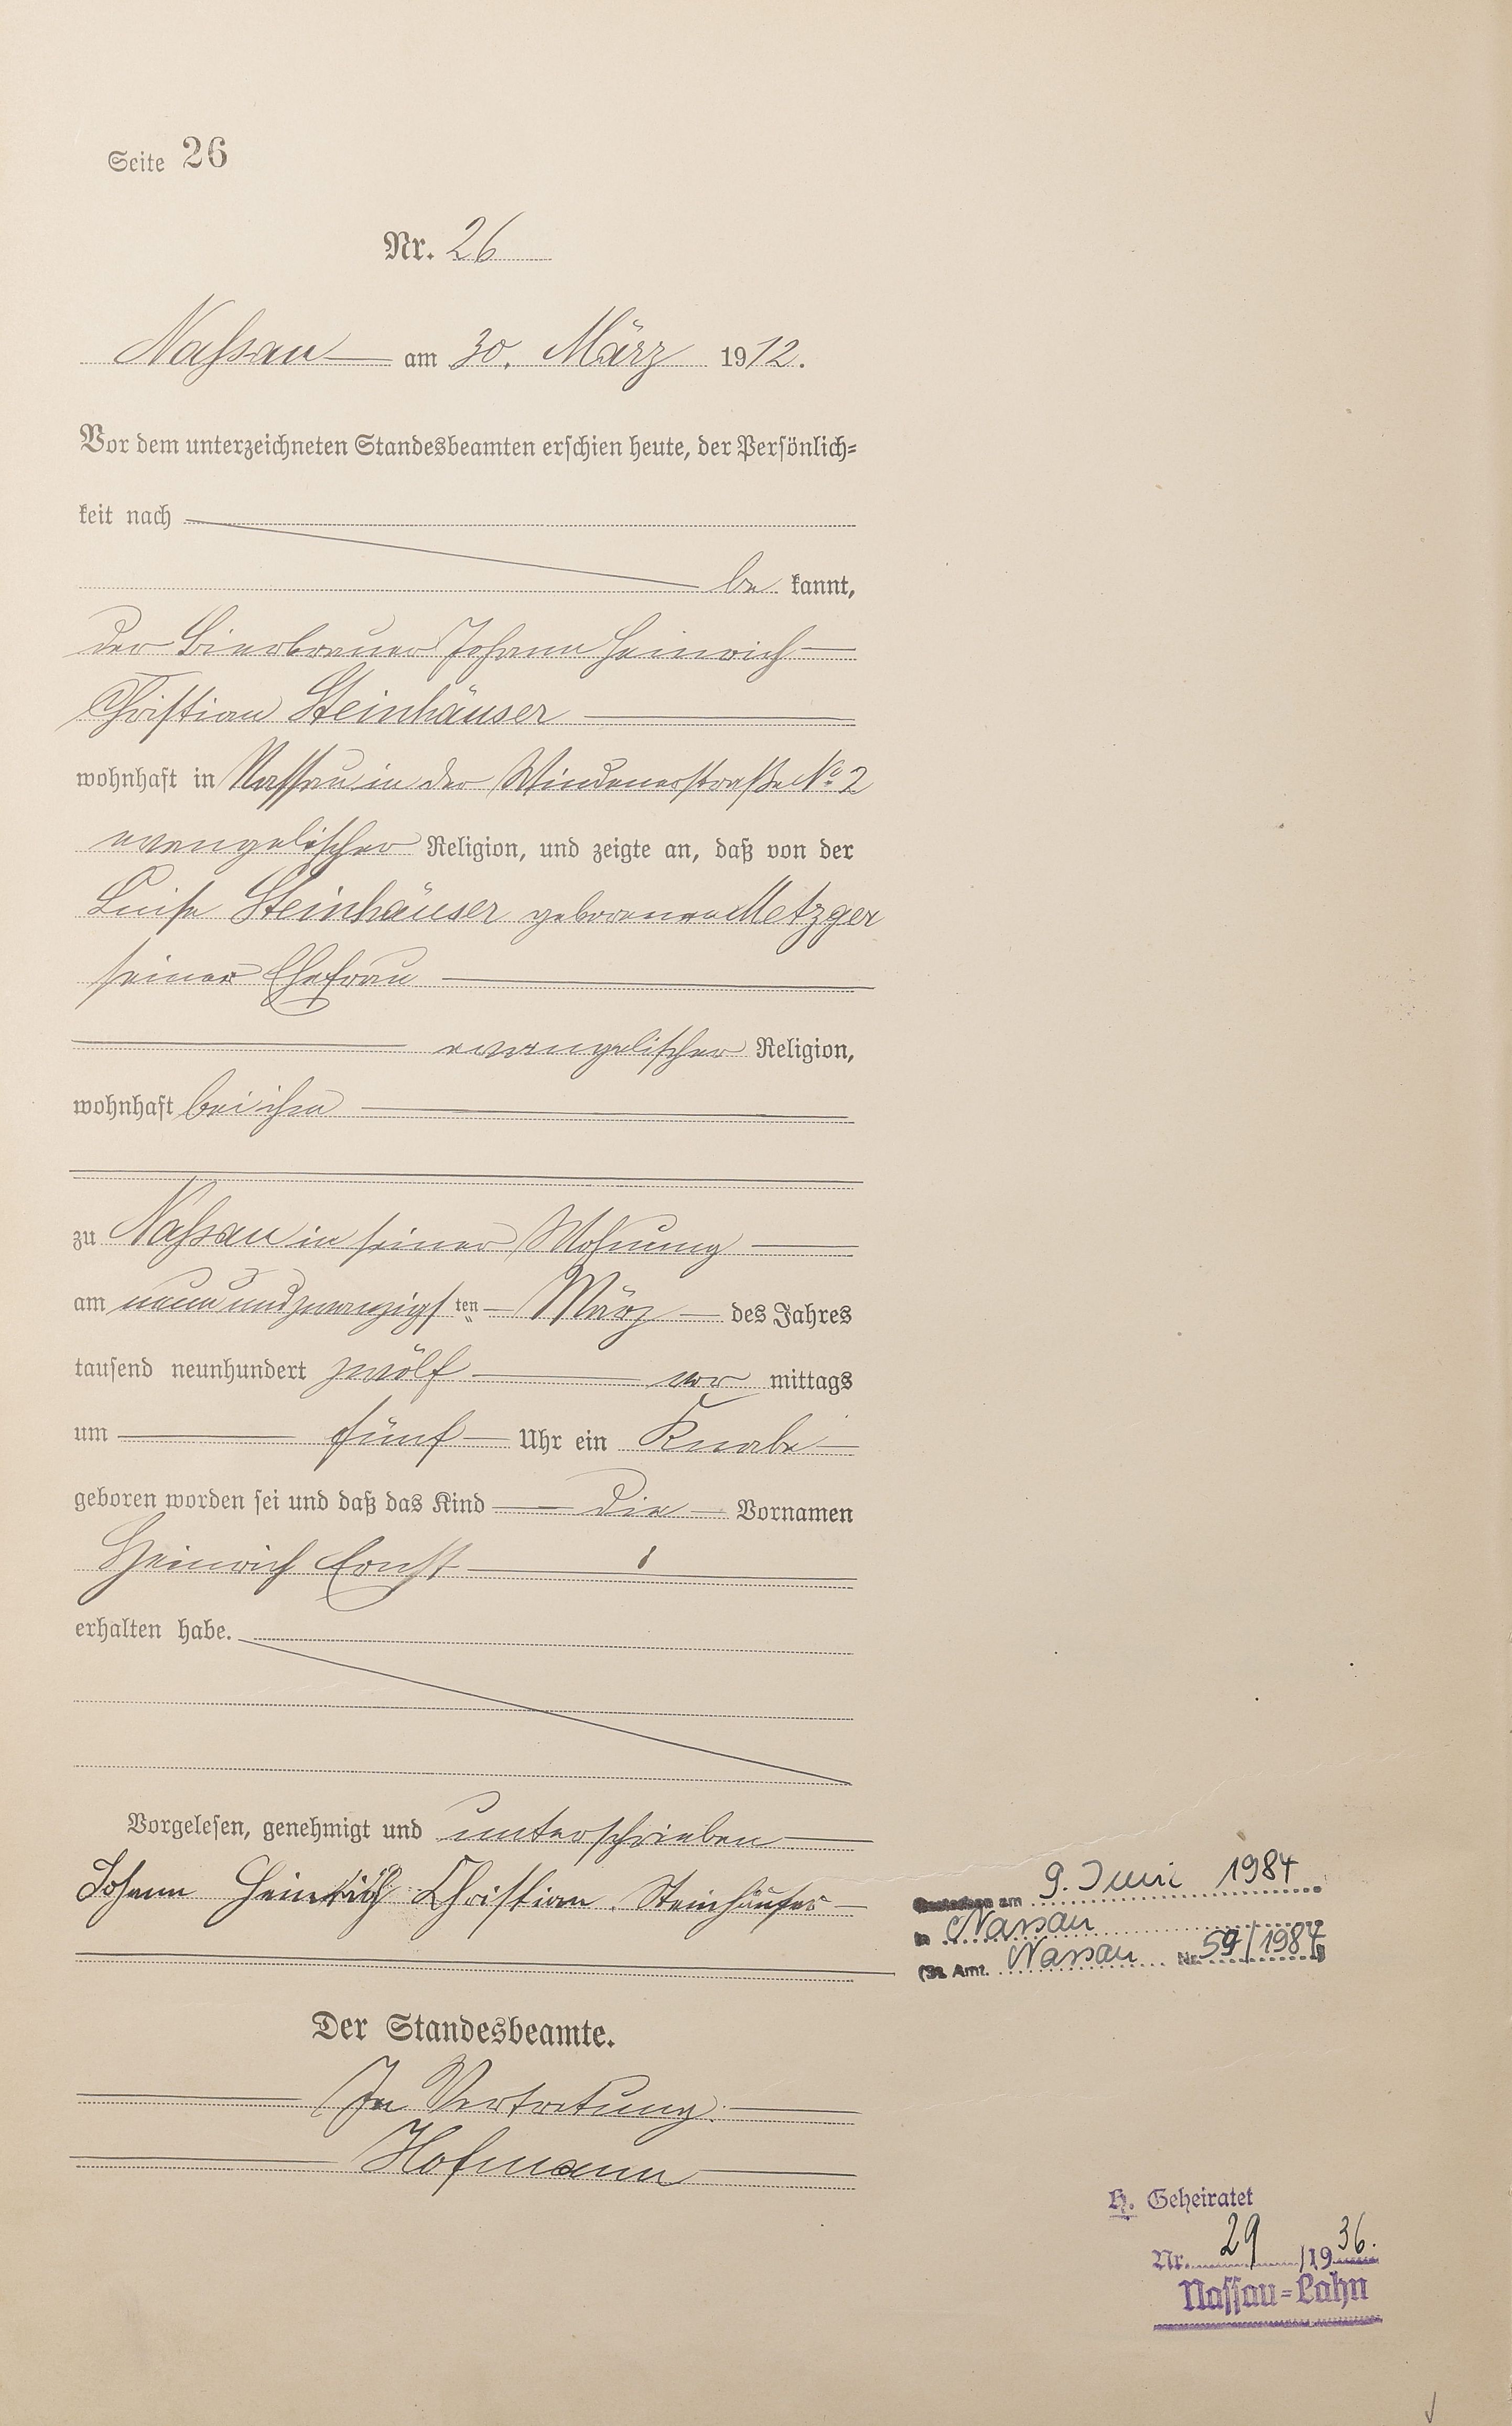 Seite 26
Nr. 26
Nassau am 30. März 1912.
Vor dem unterzeichneten Standesbeamten erschien heute, der Persönlich=
keit nach
be kannt,
der Bierbrauer Johann Heinrich
Christian Steinhäuser
wohnhaft in Nassau in der Windenerstraße No. 2
evangelischer Religion, und zeigte an, daß von der
Luise Steinhäuser geborenen Metzger
seiner Ehefrau
evangelischer Religion,
wohnhaft bei ihm
zu Nassau in seiner Wohnung
am neunundzwanzigsten März des Jahres
tausend neunhundert zwölf vor mittags
um fünf Uhr ein Knabe
geboren worden sei und daß das Kind die Vornamen
Heinrich Ernst
erhalten habe.
Vorgelesen, genehmigt und unterschrieben
Johann Heinrich Christian Steinhäuser
Der Standesbeamte.
In Vertretung.
Hofmann
am 9. Juni 1984
in Nassau
(St. Amt. Nassau Nr. 59/1984)
H. Geheiratet
Nr. 29 /1936.
Nassau=Lahn